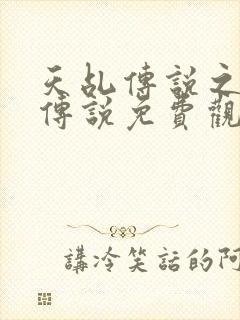 天乩傳説之
傳説免費觀
講冷笑話的阿